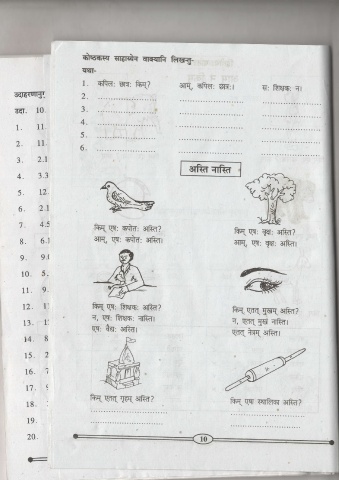 कोष्ठकस्य साहाय्येन वाक्यानि लिखन्तु-
यथा-
1. कपिलः छात्रः किम्? आम्, कपिलः छात्रः। सः शिक्षकः न।
2.
3.
4.
5.
6.
अस्ति नास्ति
किम् एषः कपोतः अस्ति?
आम्, एषः कपोतः अस्ति।
किम् एषः वृक्षः अस्ति?
आम्, एषः वृक्षः अस्ति।
किम् एषः शिक्षकः अस्ति?
न, एषः शिक्षकः नास्ति।
एषः वैद्यः अस्ति।
किम् एतत् मुखम् अस्ति?
न, एतत् मुखं नास्ति।
एतत् नेत्रम् अस्ति।
किम् एतत् गृहम् अस्ति?
किम् एषः स्थालिका अस्ति?
10
उदाहरणानुर
उदा. 10.
1. 11.
2. 11.
3. 2.1
4. 3.3
5. 12.
6. 2.1
7. 4.5
8. 6.1
9. 9.
10. 5.
11. 9.
12. 11
13.
14. 8
15. 2
16. 7
17.
18.
19.
20.